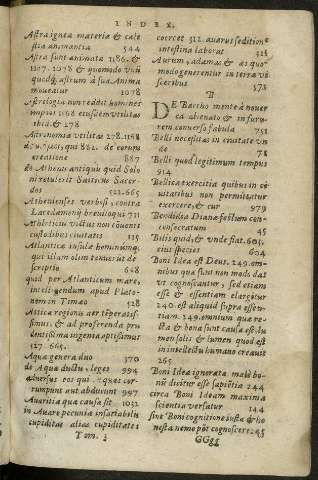 INDEX.
Astra ignea materia & cæle
stia animantia 544
Astra sunt animata 1186. &
1107. 1078 & quomodo vnū
quodq; astrum à sua Anima
moueatur 1078
Astrologia non reddit homines
impios 1168 eiusdem vtilitas
ibid. & 278
Astronomia vtilitas 278. 1168
de corum
creatione 887
Athenis antiqui quid Solo
ni retulerit Saiticus Sacer
dos 522. 665
Athenienses verbosi, contra
Lacedæmonij breuiloqui 711
custodibus ciuitatis 115
Atlanticæ insulæ hominúmq;
qui illam olim tenuerūt de
scriptio 648
quid per Atlanticum mare,
intelligendum apud Plato-
nem in Timæo 528
Attica regionis aer tēperatis
simus, & ad proferenda pru
dentissima ingenia aptissimus
527. 665.
Aqua genera duo 370
de Aqua ductu, leges 994
aduersus eos qui aquas cor-
rumpunt aut abducunt 997
Auaritia qua causa sit 1032
in Auare pecunia insatiabilis
cupiditas alias cupiditates
Tom. 3
coercet 512. auarus seditione
intestina laborat 515
Aurum, adamas & æs quo-
modo generentur in terræ vi
sceribus 573
B
DE Bacho mente à nouer
ca alienato & in furo-
rem conuerso fabula 751
Belli necessitas in ciuitate vn
de 78
Belli quod legitimum tempus
914
Bellica exercitia quibus in ci
uitatibus non permittatur
exercere, & cur 979
Bendidia Dianæ festum
consecratum 45
Bilis quid, & vnde fiat. 605,
eius species 604
Boni Idea est Deus. 249. om-
nibus quæ sunt non modò dat
vt cognoscantur, sed etiam
esse & essentiam elargitur
240. est aliquid supra essen-
tiam. 249. omnium quæ re-
cta & bona sunt causa est. lu
men solis & lumen quod est
in intellectu humano creauit
265
Boni Idea ignorata malè bo-
nū dicitur esse sapiētia 244
circa Boni Ideam maxima
scientia versatur 244
sine Boni cognitione iusta & ho
nesta nemo pōt cognoscere 245
GGgg